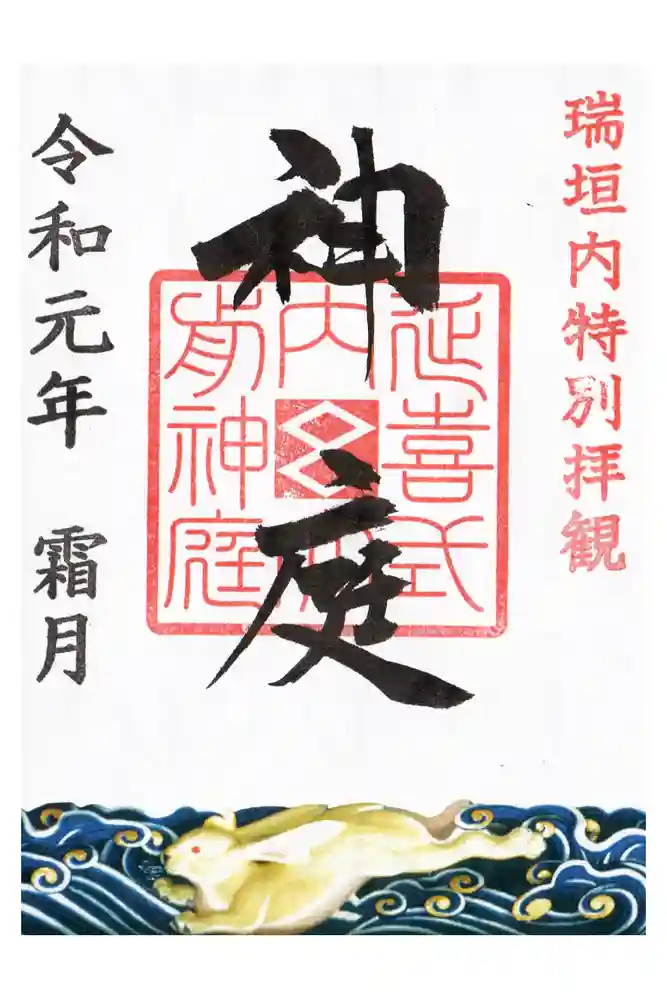 瑞垣内特別拝観
神庭
延喜式
内
神庭
令和元年 霜月